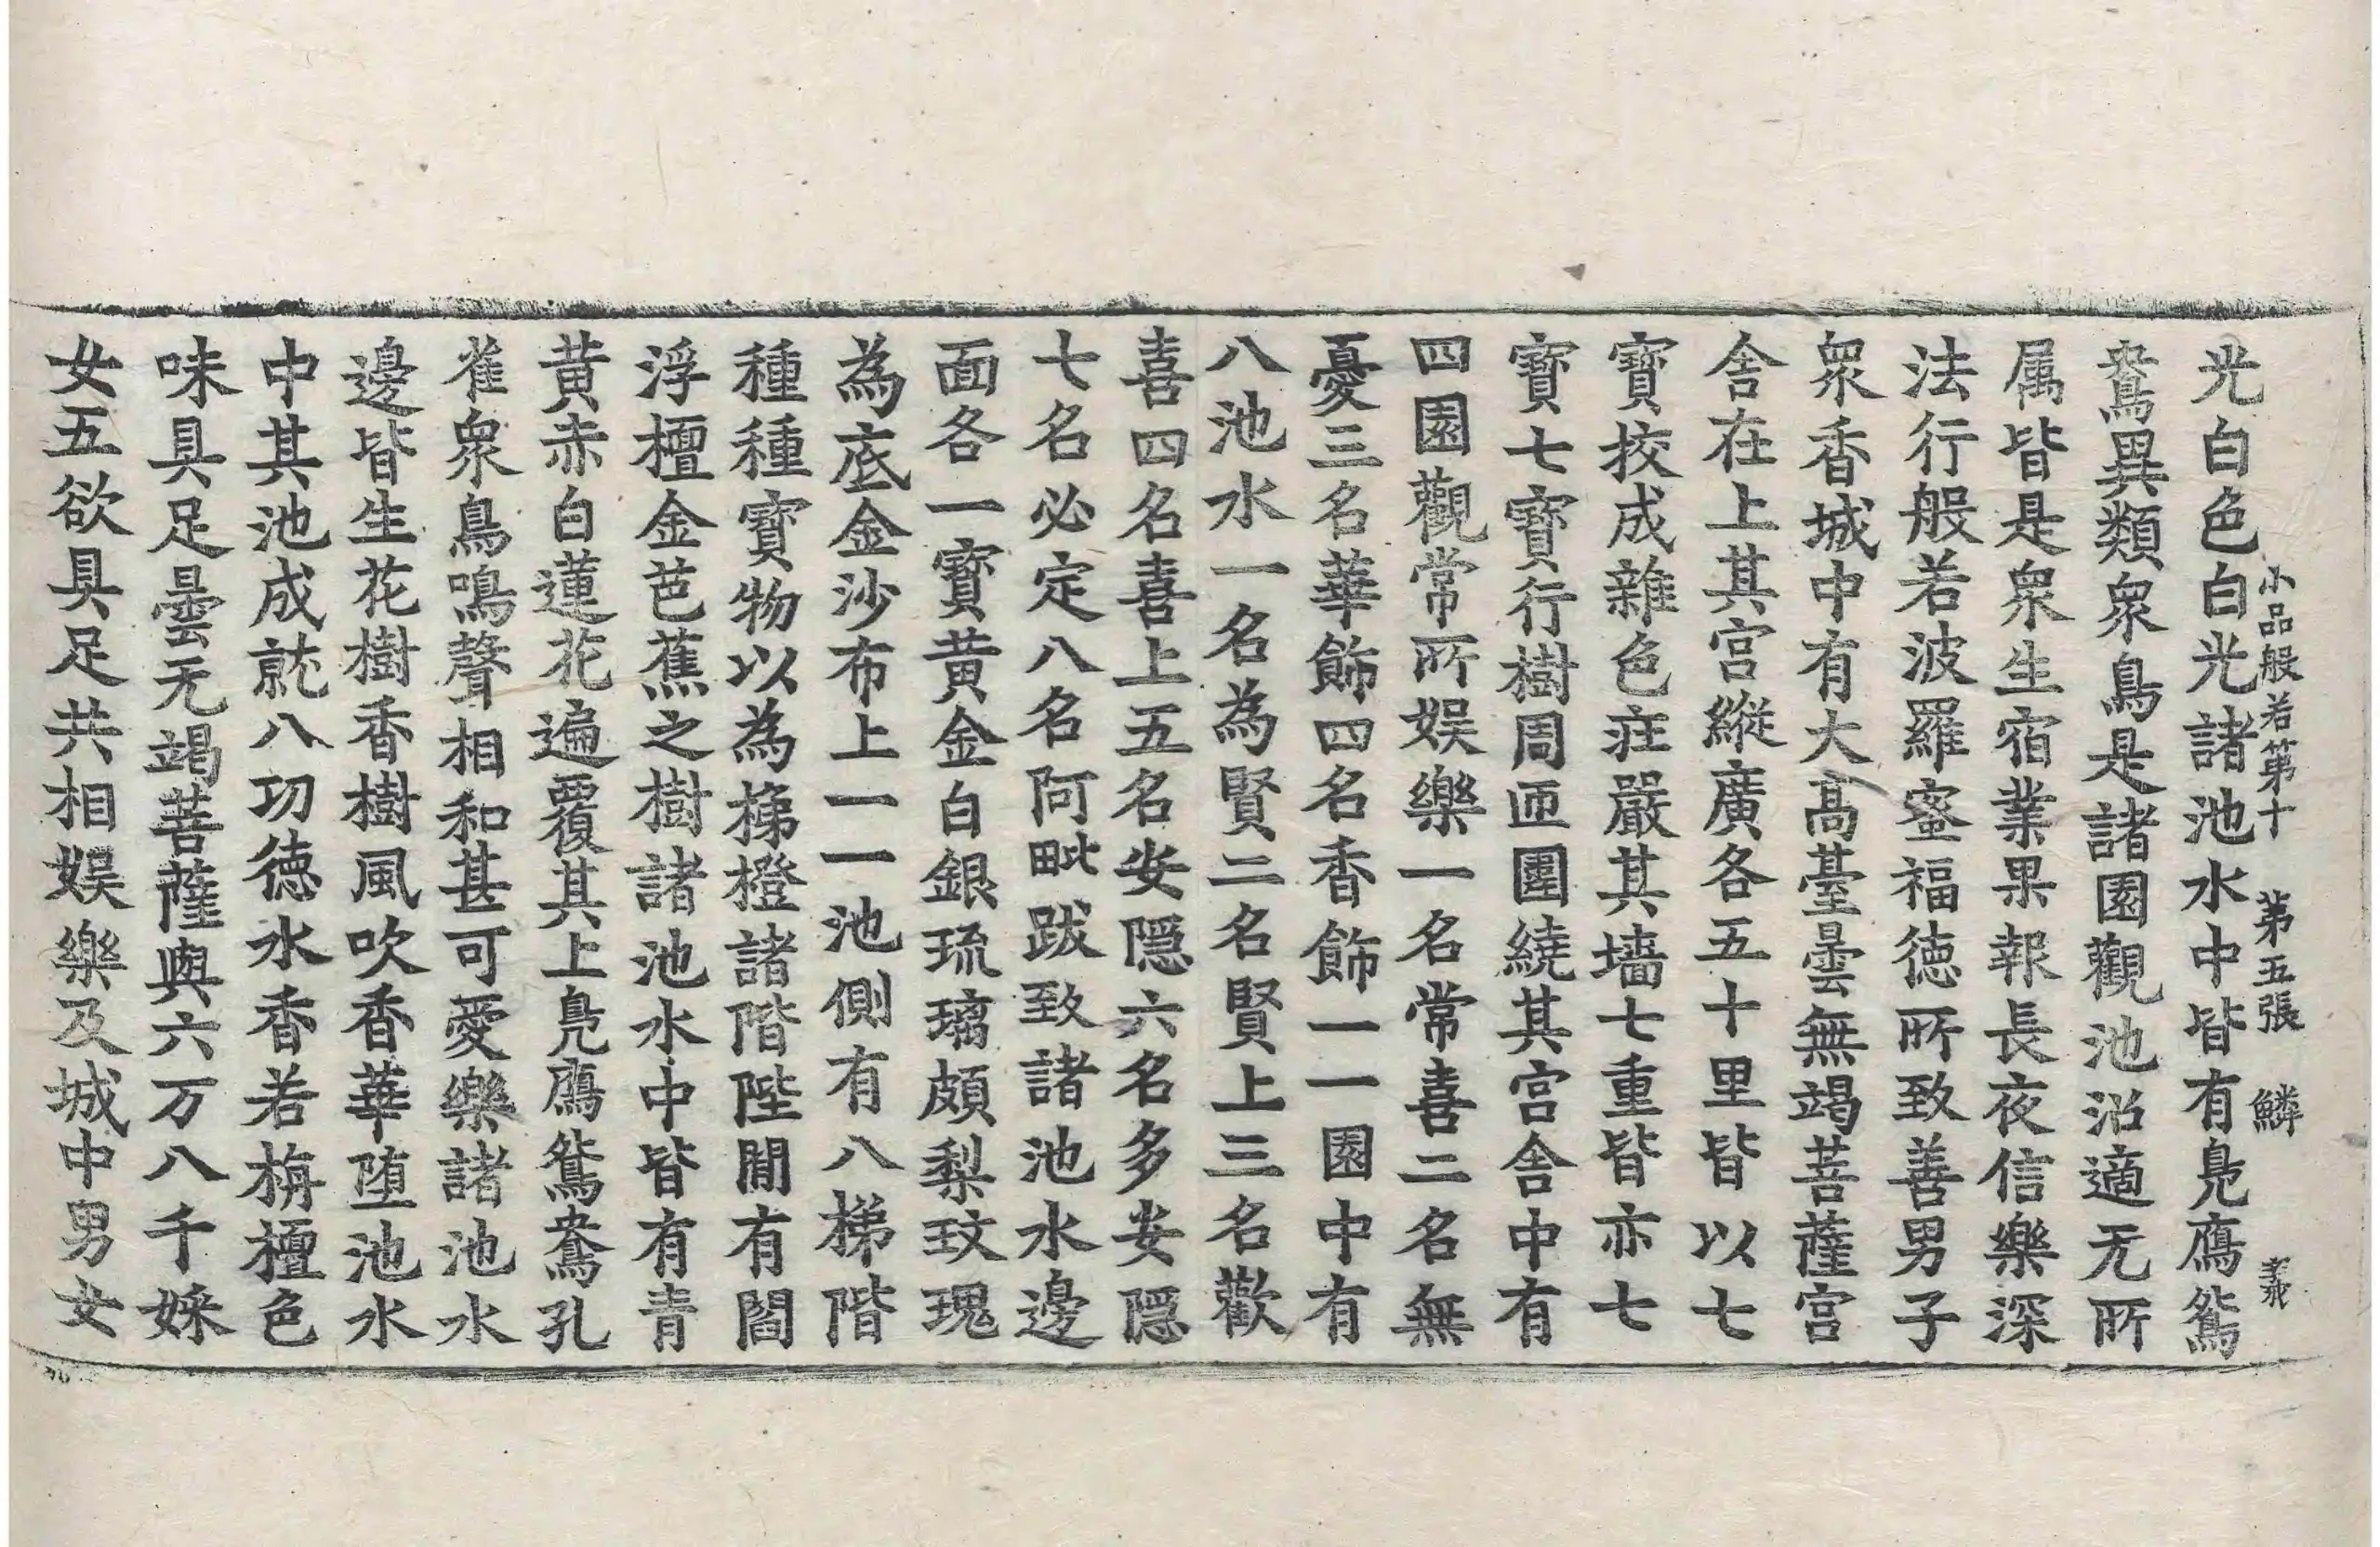 小品般若第十　第五張　鱗
光白色白光諸池水中皆有鳧鴈鴛
鴦異類衆鳥是諸園觀池沼適无所
属皆是衆生宿業果報長夜信樂深
法行般若波羅蜜福徳所致善男子
衆香城中有大髙臺曇無竭菩薩宫
舍在上其宫縱廣各五十里皆以七
寶挍成雜色莊嚴其墻七重皆亦七
寶七寶行樹周匝圍繞其宫舍中有
四園觀常所娱樂一名常喜二名無
憂三名華飾四名香飾一一園中有
八池水一名為賢二名賢上三名歡
喜四名喜上五名安隱六名多安隱
七名必定八名阿毗跋致諸池水邊
面各一寶黄金白銀琉璃頗梨玫瑰
為底金沙布上一一池側有八梯階
種種寶物以為梯橙諸階陛間有閻
浮檀金芭蕉之樹諸池水中皆有青
黄赤白蓮花遍覆其上鳧鴈鴛鴦孔
雀衆鳥鳴聲相和甚可愛樂諸池水
邊皆生花樹香樹風吹香華堕池水
中其池成就八功徳水香若栴檀色
味具足曇无竭菩薩與六万八千婇
女五欲具足共相娱樂及城中男女